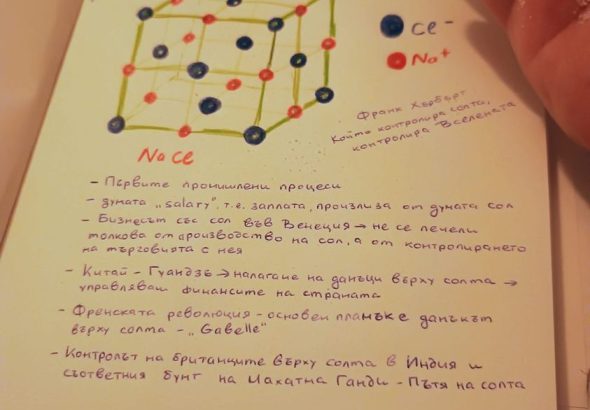 Cl⁻
Na⁺
Франк Хърбърт
Който контролира солта,
контролира Вселената
NaCl
- Първите промишлени процеси
- думата "salary", т.е. заплата, произлиза от думата сол
- Бизнесът със сол във Венеция → не се печели
толкова от производство на сол, а от контролирането
на търговията с нея
- Китай - Гуандзъ → налагане на данъци върху солта →
управляваш финансите на страната
- Френската революция - основен пламък е данъкът
върху солта - "Gabelle"
- Контролът на британците върху солта в Индия и
съответния бунт на Махатма Ганди - Пътя на солта